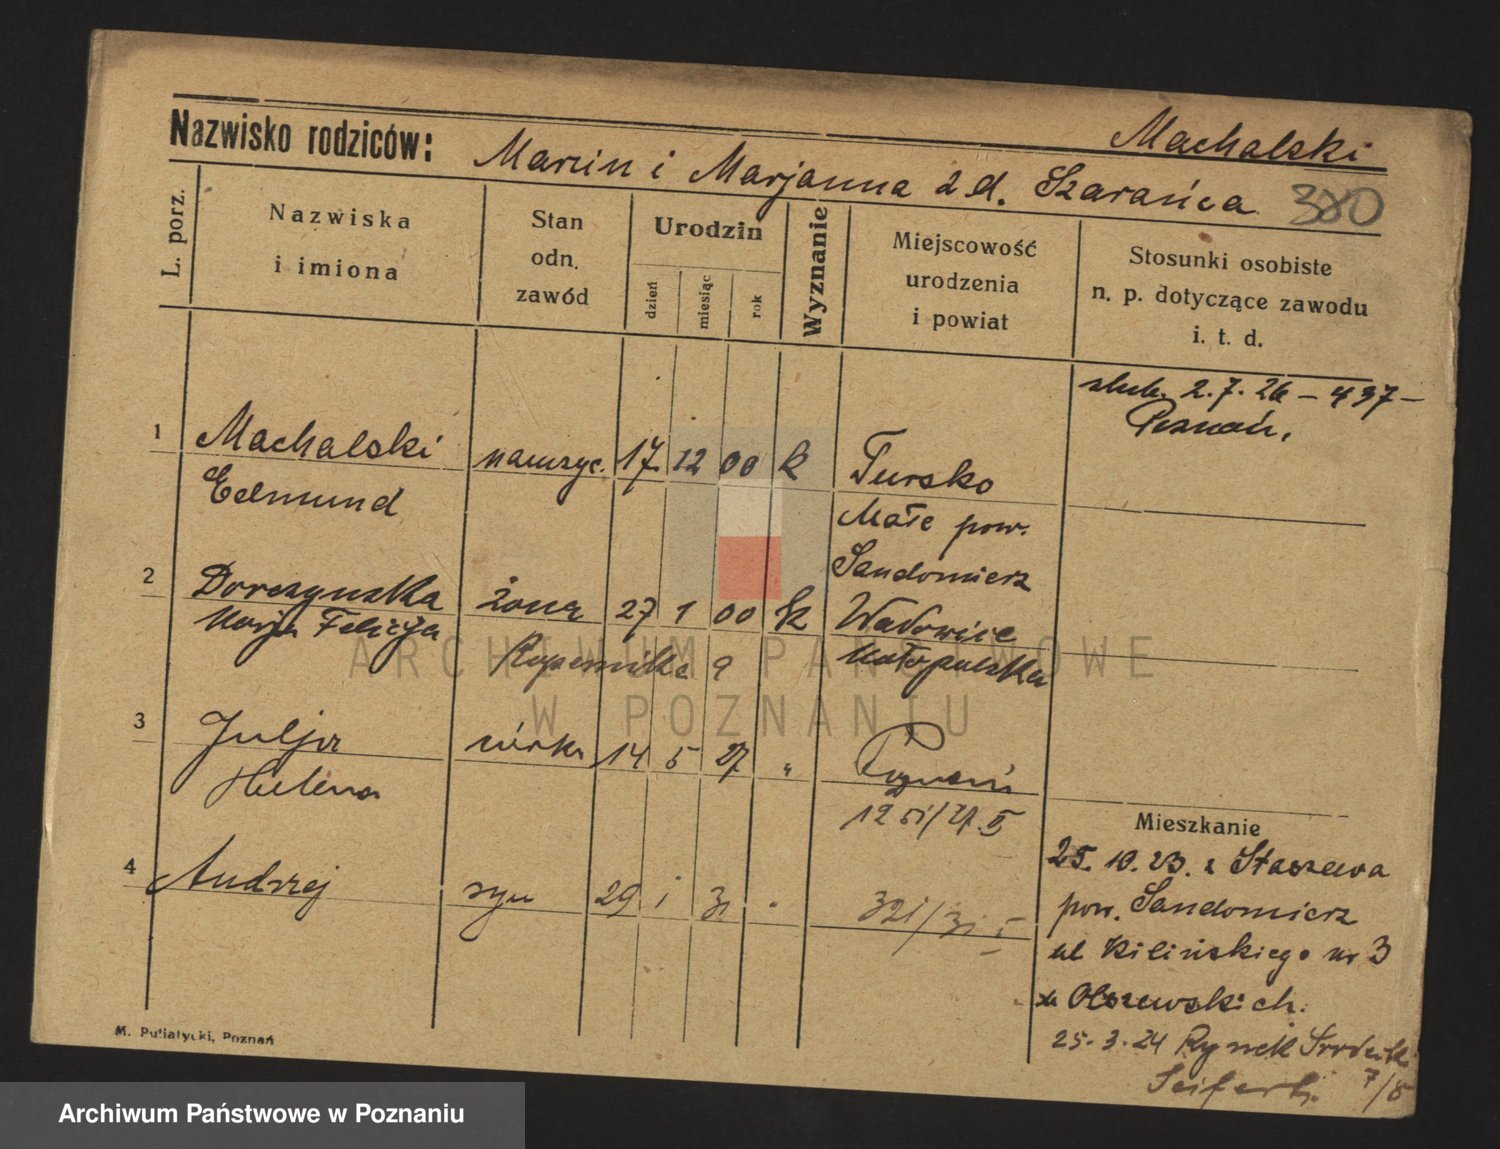 Machalski
Nazwisko rodziców: Marcin i Marjanna z d. Szarańca 380
L. porz.
Nazwiska
i imiona
Stan
odn.
zawód
Urodzin
dzień
miesiąc
rok
Wyznanie
Miejscowość
urodzenia
i powiat
Stosunki osobiste
n. p. dotyczące zawodu
i. t. d.
ślub. 2.7.26 – 497 –
Poznań,
1 Machalski nauczyc. 17. 12 00 k Tursko
Edmund Małe pow.
Sandomierz
2 Dorczynska żona 27 1 00 k Wadowice
Marja Felicja Małopolska
Kopernika 9
3 Julja córka 14 5 27 „ Poznań
Helena
Mieszkanie
4 Andrzej syn 29 i 31
25. 10. 23. z Staszewa
pow. Sandomierz
ul Kilińskiego nr 3
u Olszewskich.
25. 3. 24 Rynek Śródecki
Seifert. 7/8
M. Putiatycki, Poznań
ARCHIWUM PAŃSTWOWE
W POZNANIU
Archiwum Państwowe w Poznaniu